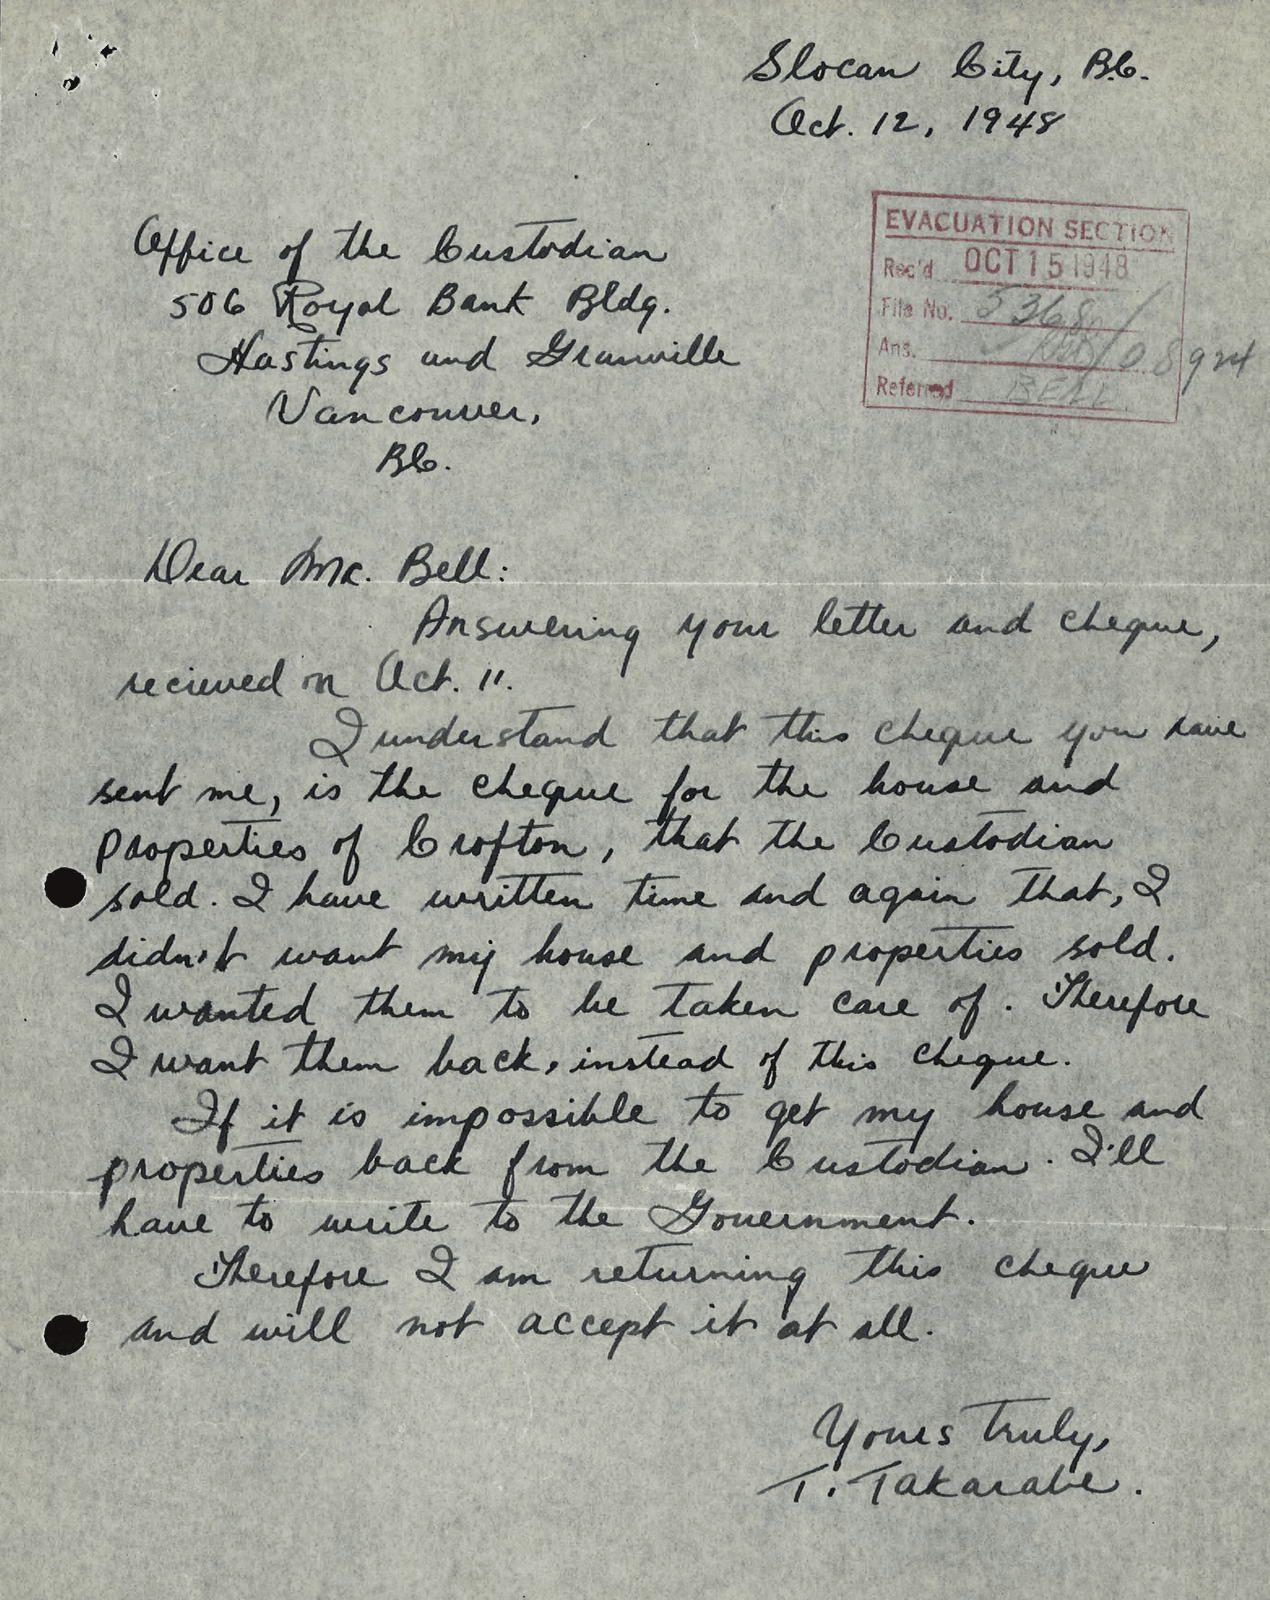 Slocan City, B.C.
Oct. 12, 1948
EVACUATION SECTION
Rec'd OCT 15 1948
File No. 5368
Ans.
Referred BELL
Office of the Custodian
506 Royal Bank Bldg.
Hastings and Granville
Vancouver,
B.C.
Dear Mr. Bell:
Answering your letter and cheque,
recieved on Oct. 11.
I understand that this cheque you have
sent me, is the cheque for the house and
properties of Crofton, that the Custodian
sold. I have written time and again that, I
didn't want my house and properties sold.
I wanted them to be taken care of. Therefore
I want them back, instead of this cheque.
If it is impossible to get my house and
properties back from the Custodian. I'll
have to write to the Government.
Therefore I am returning this cheque
and will not accept it at all.
Yours truly,
T. Takarabe.